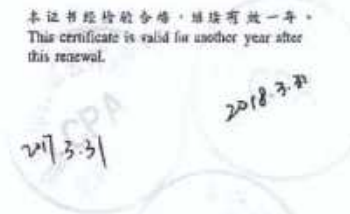 本证书经检验合格，继续有效一年。
This certificate is valid for another year after
this renewal.
2018.3.31
2017.3.31
CPA